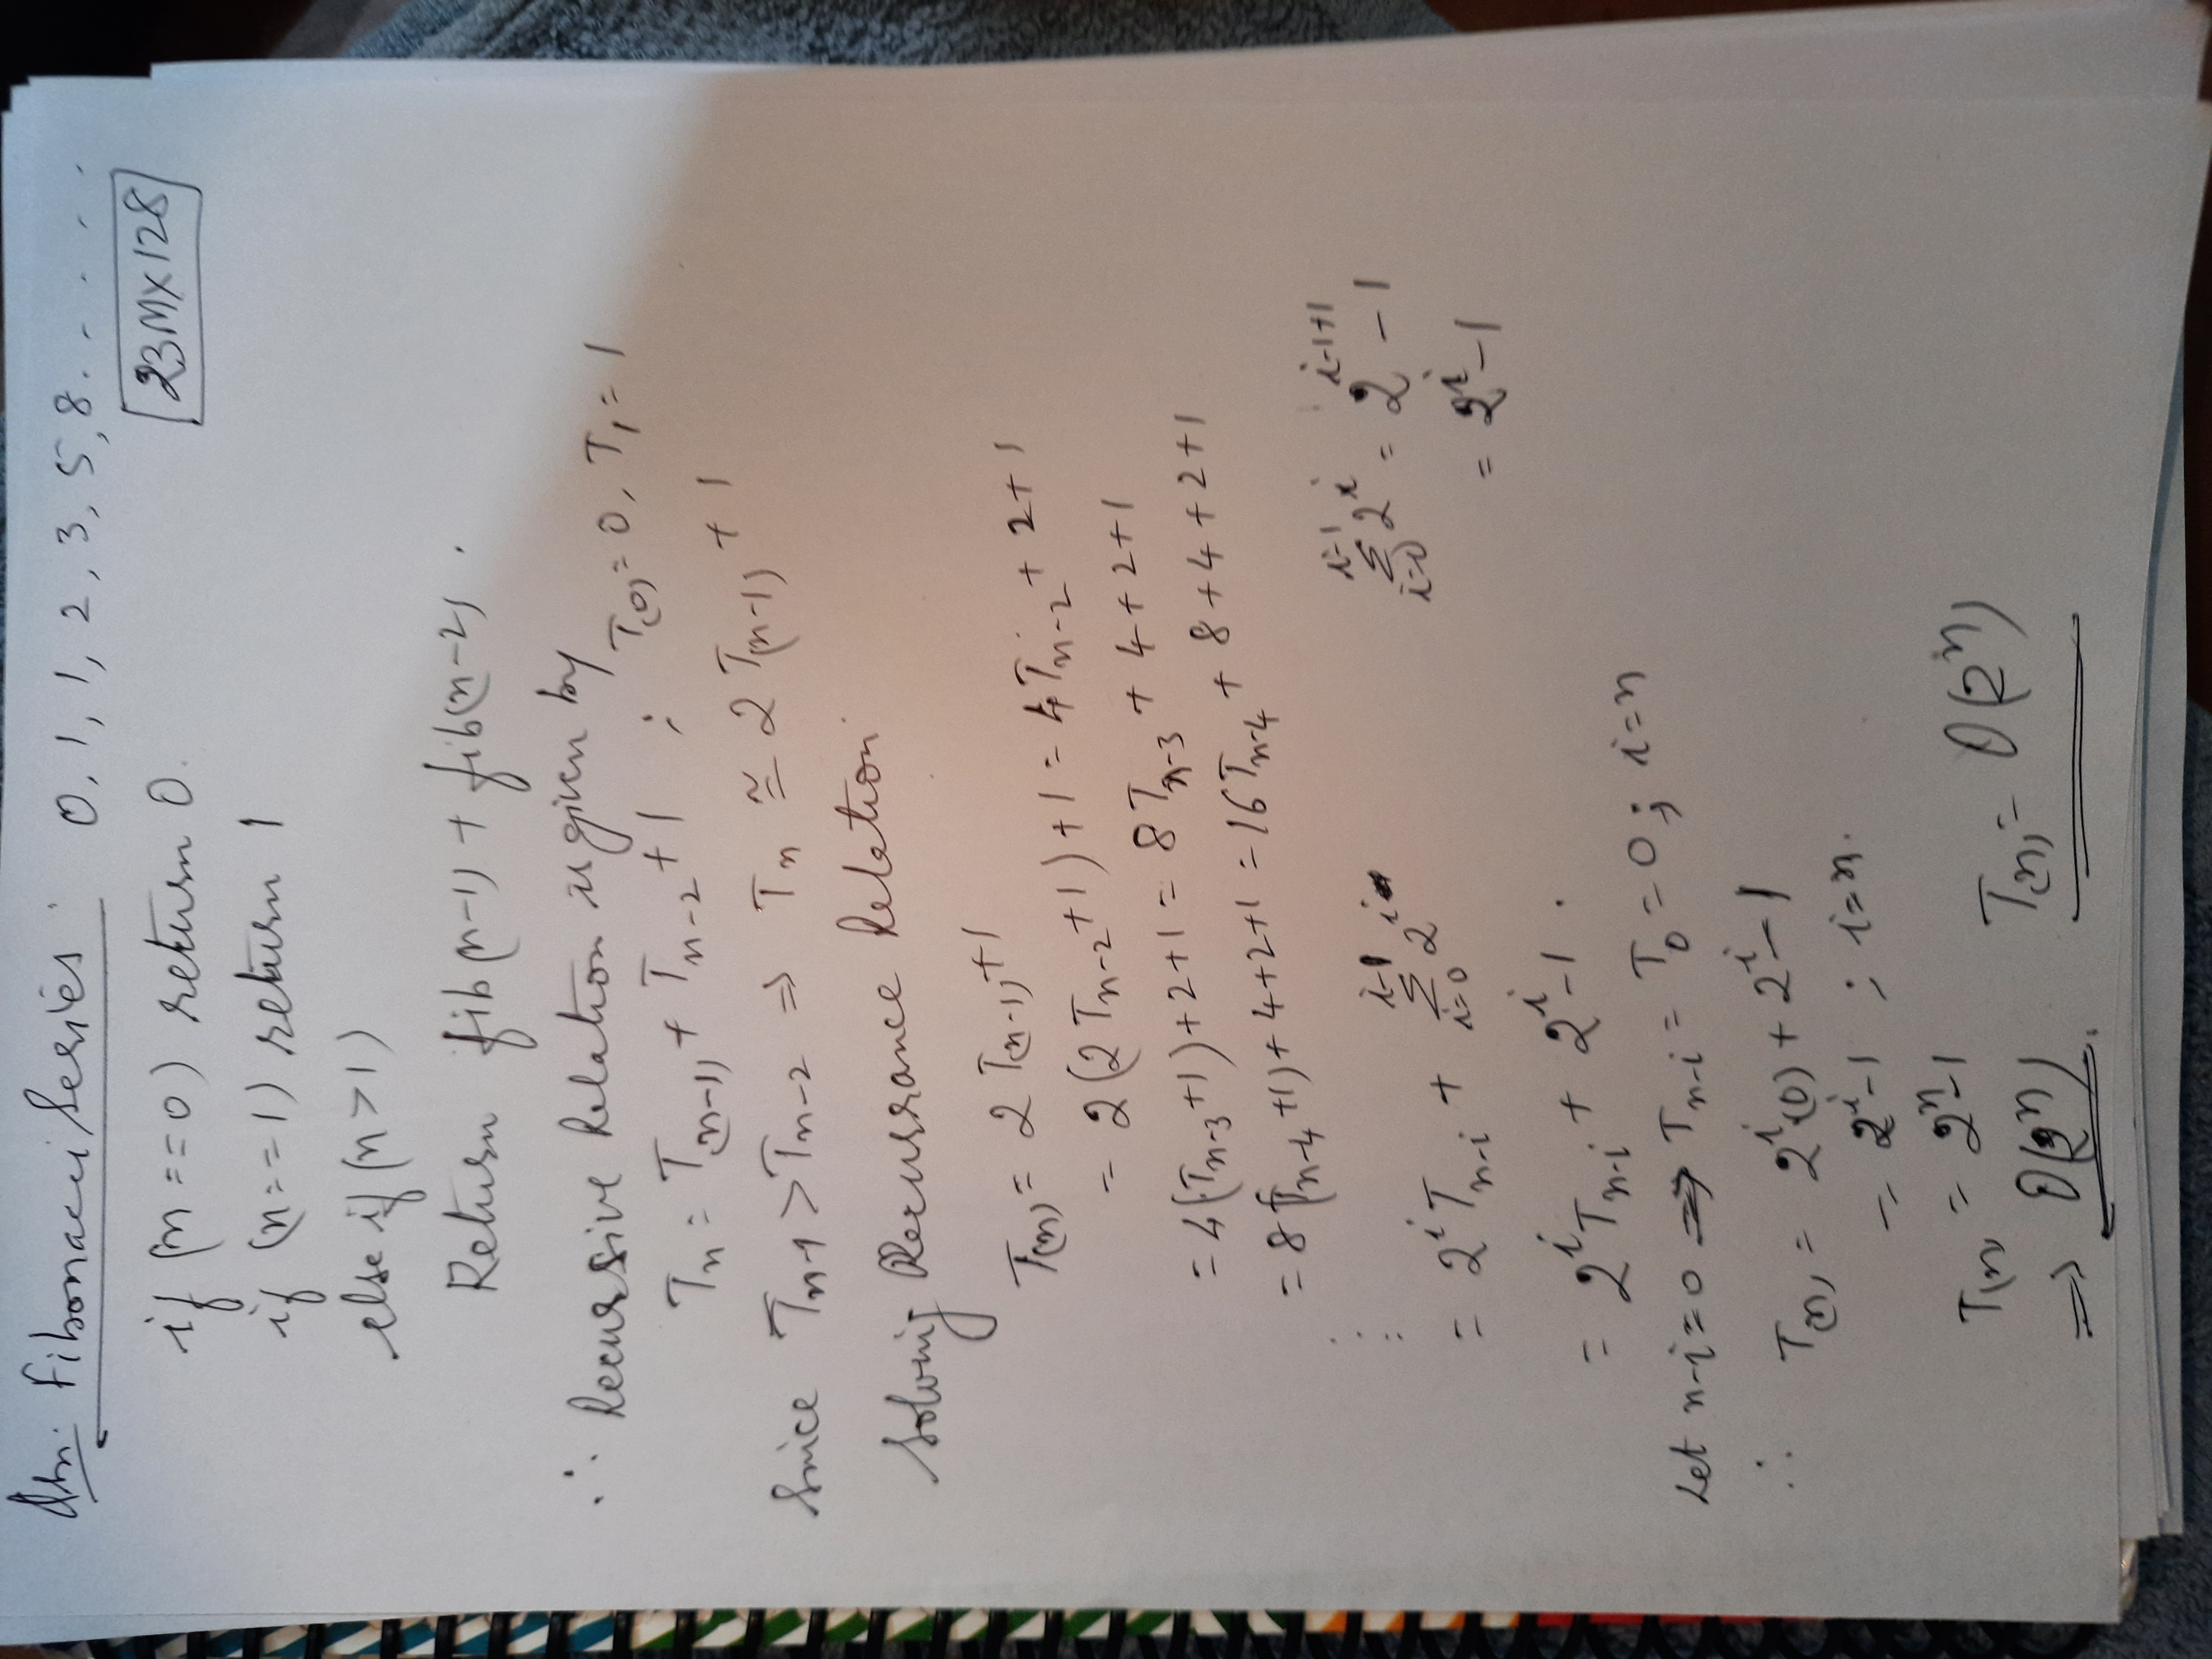 Qn. Fibonacci Series : 0, 1, 1, 2, 3, 5, 8 . . . . . .
23MX128
if (n == 0) return 0.
if (n == 1) return 1
else if (n > 1)
Return fib(n-1) + fib(n-2) .
∴ Recursive Relation is given by
Tₙ = T(n-1) + Tₙ₋₂ + 1 ; T(0) = 0, T₁ = 1
Since Tₙ₋₁ > Tₙ₋₂ ⇒ Tₙ ≅ 2 T(n-1) + 1
Solving Recurrance Relation
T(n) = 2 T(n-1) + 1
= 2(2 Tₙ₋₂ + 1) + 1 = 4Tₙ₋₂ + 2 + 1
= 4(Tₙ₋₃ + 1) + 2 + 1 = 8 Tₙ₋₃ + 4 + 2 + 1
= 8(Tₙ₋₄ + 1) + 4 + 2 + 1 = 16 Tₙ₋₄ + 8 + 4 + 2 + 1
⋮
= 2^i T_{n-i} + Σ_{i=0}^{i-1} 2^i
Σ_{i=0}^{i-1} 2^i = 2^{i-1+1} - 1
= 2^i - 1
= 2^i T_{n-i} + 2^i - 1 .
Let n-i = 0 ⇒ T_{n-i} = T₀ = 0 ; i = n
∴ T(n) = 2^i (0) + 2^i - 1
= 2^i - 1 ; i = n.
T(n) = 2^n - 1
⇒ O(2^n). T(n) = O(2^n)